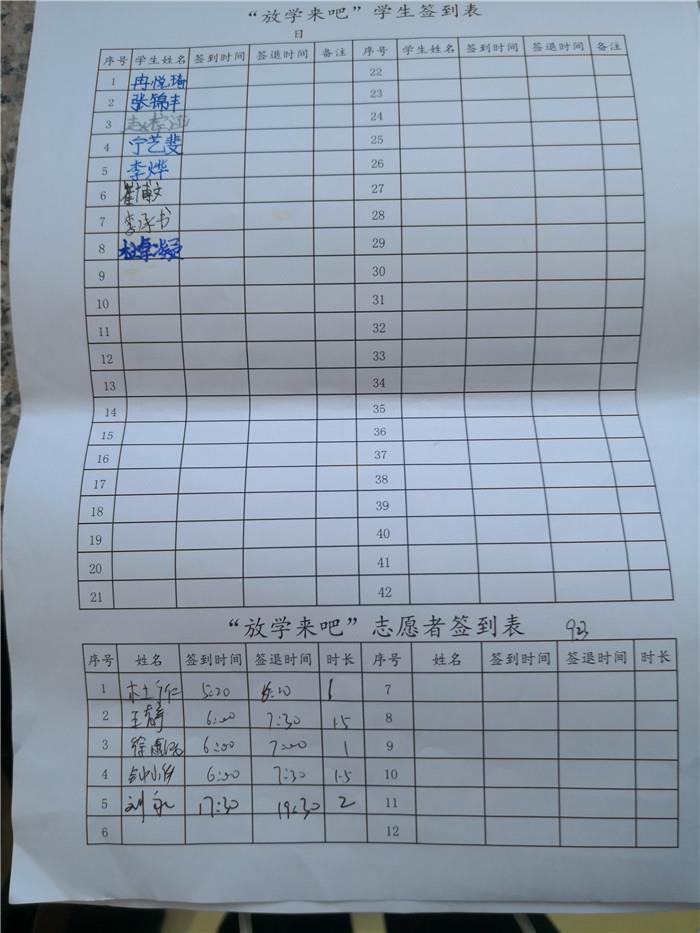 “放学来吧”学生签到表
日
序号 学生姓名 签到时间 签退时间 备注 序号 学生姓名 签到时间 签退时间 备注
1 冉悦琦 22
2 张锦丰 23
3 24
4 宁艺斐 25
5 李烨 26
6 崔博文 27
7 李承书 28
8 杜卓凝 29
9 30
10 31
11 32
12 33
13 34
14 35
15 36
16 37
17 38
18 39
19 40
20 41
21 42
“放学来吧”志愿者签到表 9.3
序号 姓名 签到时间 签退时间 时长 序号 姓名 签到时间 签退时间 时长
1 5:20 6:20 1 7
2 王静 6:00 7:30 1.5 8
3 徐 6:00 7:00 1 9
4 6:00 7:30 1.5 10
5 刘 17:30 19:30 2 11
6 12